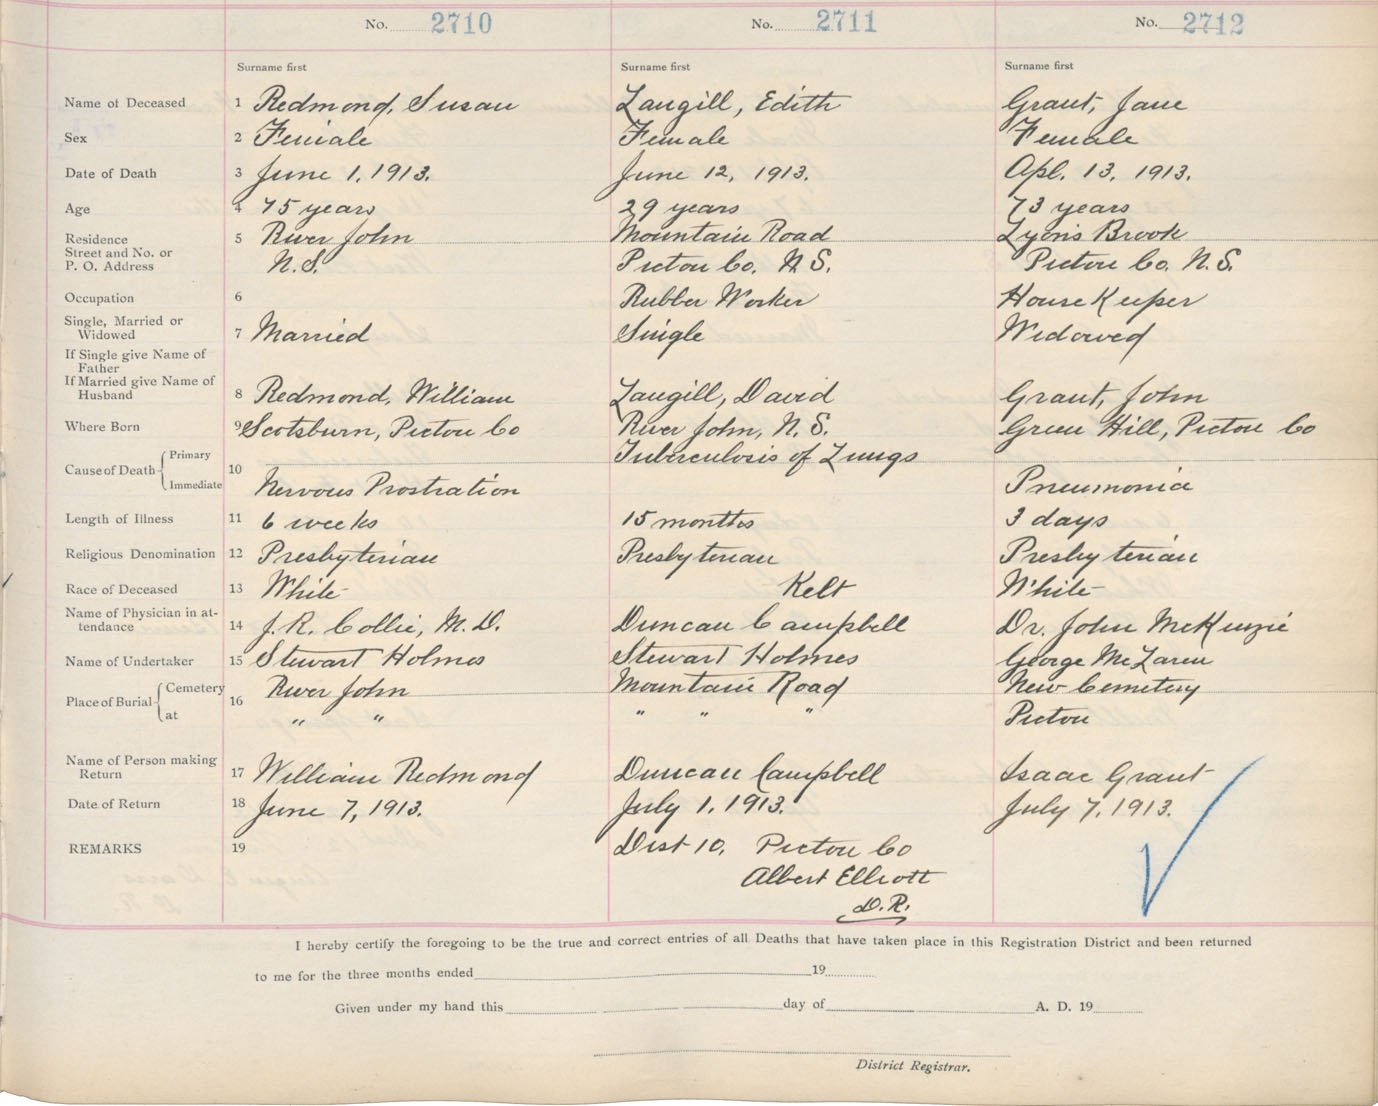 No. 2710 No. 2711 No. 2712
Surname first Surname first Surname first
Name of Deceased 1 Redmond, Susan Langill, Edith Grant, Jane
Sex 2 Female Female Female
Date of Death 3 June 1, 1913. June 12, 1913. Apl. 13, 1913.
Age 4 75 years 29 years 73 years
Residence 5 River John Mountain Road Lyons Brook
Street and No. or
P. O. Address N.S. Pictou Co. N.S. Pictou Co. N.S.
Occupation 6 Rubber Worker House Keeper
Single, Married or
Widowed 7 Married Single Widowed
If Single give Name of
Father
If Married give Name of
Husband 8 Redmond, William Langill, David Grant, John
Where Born 9 Scotsburn, Pictou Co River John, N.S. Green Hill, Pictou Co
Cause of Death Primary 10 Tuberculosis of Lungs
Immediate Nervous Prostration Pneumonia
Length of Illness 11 6 weeks 15 months 3 days
Religious Denomination 12 Presbyterian Presbyterian Presbyterian
Race of Deceased 13 White Kelt White
Name of Physician in at-
tendance 14 J. R. Collie, M.D. Duncan Campbell Dr. John McKenzie
Name of Undertaker 15 Stewart Holmes Stewart Holmes George McLaren
Place of Burial Cemetery 16 River John Mountain Road New Cemetery
at " " " " " Pictou
Name of Person making
Return 17 William Redmond Duncan Campbell Isaac Grant
Date of Return 18 June 7, 1913. July 1, 1913. July 7, 1913.
REMARKS 19 Dist 10, Pictou Co
Albert Elliott
D.R.
I hereby certify the foregoing to be the true and correct entries of all Deaths that have taken place in this Registration District and been returned
to me for the three months ended 19
Given under my hand this day of A. D. 19
District Registrar.